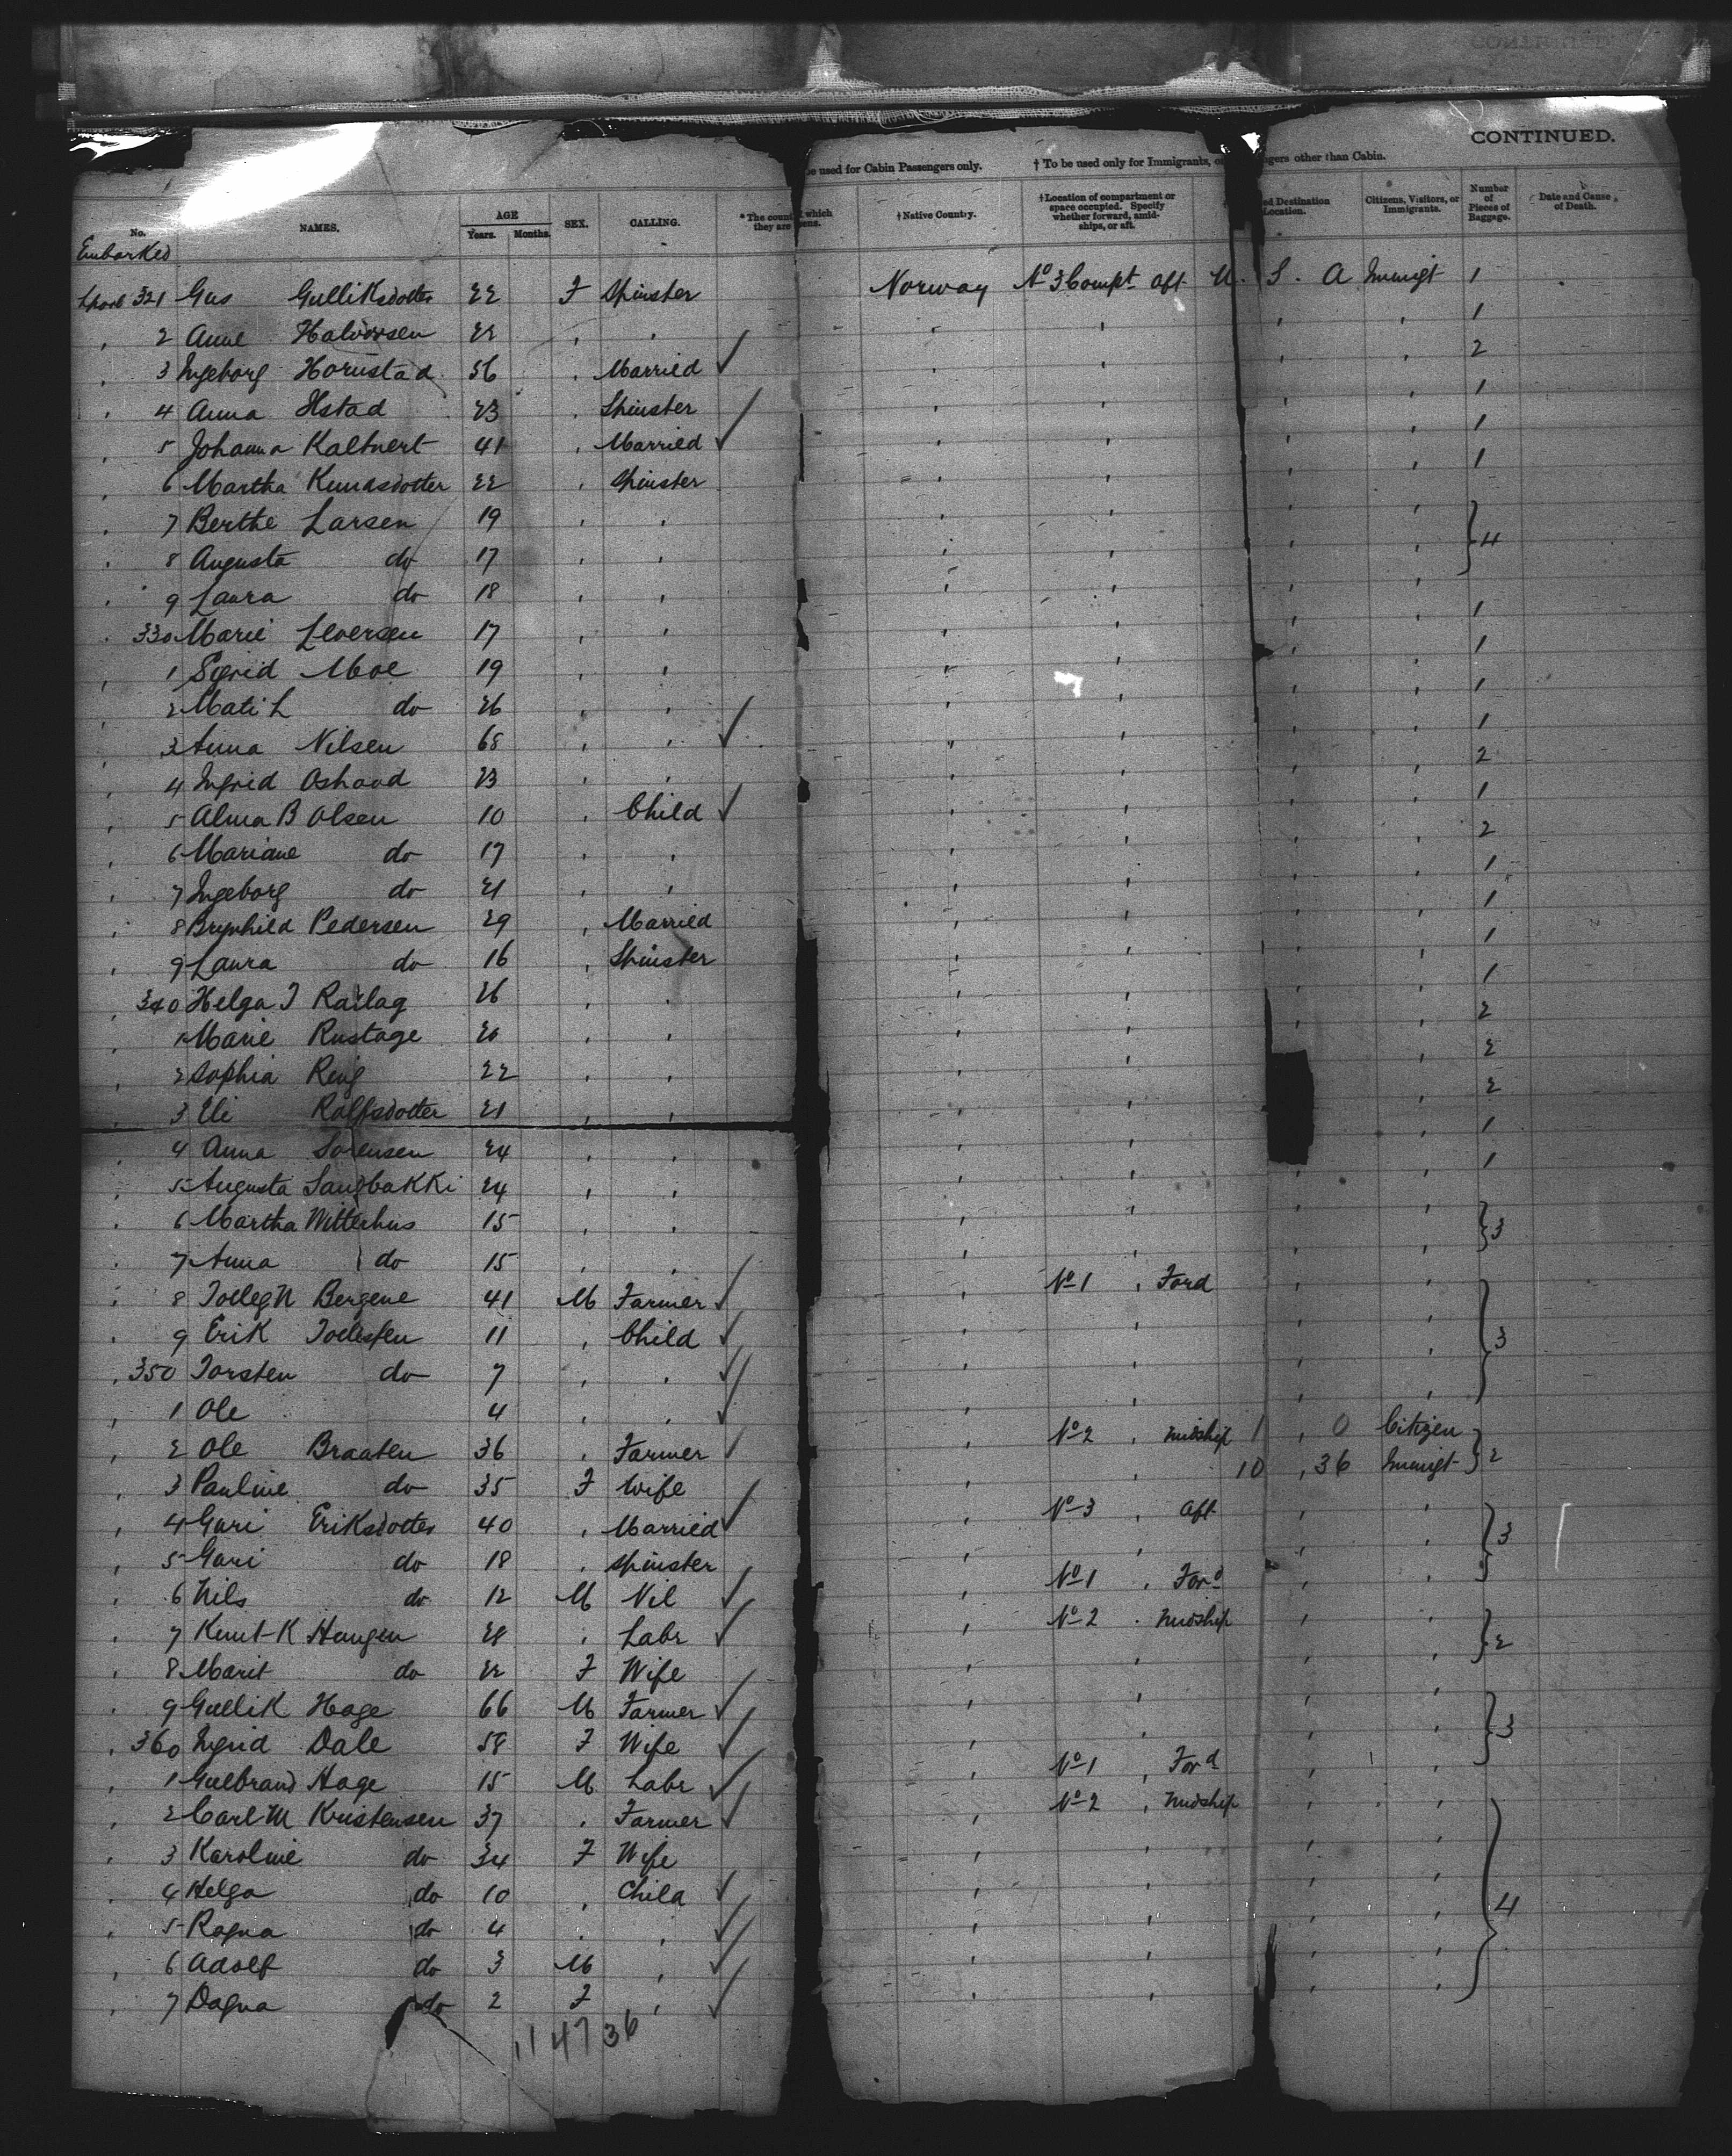 CONTINUED.
be used for Cabin Passengers only. † To be used only for Immigrants, or passengers other than Cabin.
No. NAMES. AGE Years. Months. SEX. CALLING. * The country of which they are citizens. † Native Country. † Location of compartment or space occupied. Specify whether forward, amidships, or aft. ed Destination Location. Citizens, Visitors, or Immigrants. Number of Pieces of Baggage. Date and Cause of Death.
Embarked
321 Gus Gulliksdotter 22 F Spinster Norway No 3 Compt aft U. S. A Immigt 1
2 Anne Halvorsen 22 " " 1
3 Ingeborg Hornstad 56 " Married ✓ 2
4 Anna Hstad 23 " Spinster ✓ 1
5 Johanna Kaltvert 41 " Married ✓ 1
6 Martha Knudsdotter 22 " Spinster 1
7 Berthe Larsen 19 " "
8 Augusta do 17 " " } 4
9 Laura do 18 " "
330 Marie Leversen 17 " " 1
1 Sigrid Moe 19 " " 1
2 Mati L do 26 " " 1
3 Anna Nilsen 68 " " ✓ 1
4 Ingrid Oshood 23 " " 2
5 Alma B Olsen 10 " Child ✓ 1
6 Mariane do 17 " " 2
7 Ingeborg do 21 " " 1
8 Brynhild Pedersen 29 " Married 1
9 Laura do 16 " Spinster 1
340 Helga T Railag 26 " " 1
1 Marie Rustage 20 " " 2
2 Sophia Reng 22 " " 2
3 Eli Rolfsdotter 21 " " 2
4 Anna Sorensen 24 " " 1
5 Augusta Sangbakki 24 " " 1
6 Martha Witterhus 15 " "
7 Anna do 15 " " } 3
8 Tolleg N Bergene 41 M Farmer ✓ No 1 " Ford
9 Erik Tollefsen 11 " Child ✓ } 3
350 Torsten do 7 " " ✓
1 Ole 4 " " ✓
2 Ole Braaten 36 " Farmer ✓ No 2 " midship 1 " 0 Citizen
3 Pauline do 35 F Wife 10 " 36 Immigt } 2
4 Guri Eriksdotter 40 " Married ✓ No 3 aft
5 Guri do 18 " Spinster } 3
6 Nils do 12 M Nil ✓ No 1 " Ford
7 Knut K Haugen 28 " Labr ✓ No 2 " midship
8 Marit do 22 F Wife } 2
9 Gullik Hage 66 M Farmer ✓
360 Ingrid Dale 58 F Wife ✓ } 3
1 Gulbrand Hage 15 M Labr ✓ No 1 " Ford
2 Carl M Kristensen 37 " Farmer ✓ No 2 " midship
3 Karoline do 34 F Wife
4 Helga do 10 " Child ✓ } 4
5 Ragna do 4 " " ✓
6 Adolf do 3 M " ✓
7 Dagna do 2 F " ✓
11 47 36